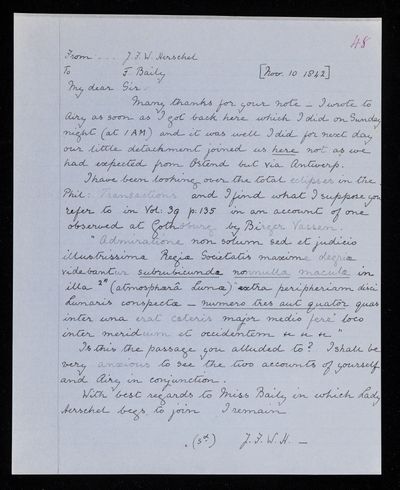 48
From . . . J. F. W. Herschel
To F. Baily [Nov. 10 1842]
My dear Sir.
Many thanks for your note – I wrote to
Airy as soon as I got back here which I did on Sunday
night (at 1 AM) and it was well I did for next day
our little detachment joined us here not as we
had expected from Ostend but via Antwerp.
I have been looking over the total eclipses in the
Phil: Transactions and I find what I suppose you
refer to in Vol: 39 p: 135 in an account of one
observed at Gothoburg by Birger Vassem.
" Admiratione non solum sed et judicio
illustrissimæ Regiæ Societatis maxime
videbantur subrubicundæ nonnullæ maculæ in
illa (atmosphærâ Lunæ) extra peripheriam disci
Lunaris conspectæ – numero tres aut quator quas
inter una erat cæteris major medio fere loco
inter meridiem et occidentem
Is this the passage you alluded to? I shall be
very anxious to see the two accounts of yourself
and Airy in conjunction.
With best regards to Miss Baily in which Lady
Herschel begs to join I remain
(sd.) J. F. W. H. –